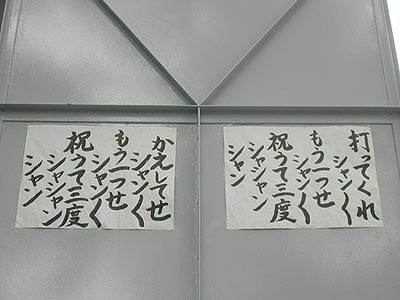 打ってくれ
シャン〱
もう一つせ
シャン〱
祝うて三度
シャシャン
シャン
かえしてせ
シャン〱
もう一つせ
シャン〱
祝うて三度
シャシャン
シャン